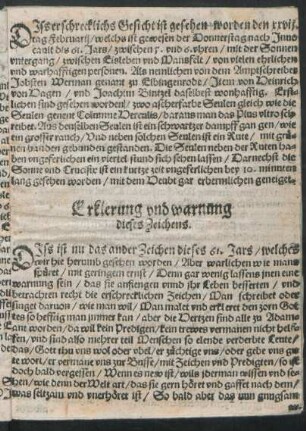 DIs erschrecklichs Gesicht ist gesehen worden den xxvij.
tag februarij / welchs ist gewesen der Donnerstag nach Inuo
cauit bis 61. Jars / zwischen 5. vnd 6. vhren / mit der Sonnen
vntergang / zwischen Eisleben vnd Mansfelt / von vielen ehrlichen
vnd warhafftigen personen. Als nemlichen von dem Amptschreiber
Jobsten Wernan genant zu Eibingenrode / Item von Heinrich
von Dagen / vnd Joachim Bintzel daselbest wonhafftig. Erst-
lichen sind gesehen worden / zwo ascherfarbe Seulen gleich wie die
Seulen genent Columne Herculis / daraus man das Plus vltra schr-
eibet. Aus denselben Seulen ist ein schwartzer dampff gangen / wie
ein grosser rauch / Vnd neben solchen Seulen ist ein Rute / mit grün-
en banden gebunden gestanden. Die Seulen neben der Ruten haben
ungeferlichen ein viertel stund sich sehen lassen / Darnechst die
Sonne vnd Crucifix ist ein kurtze zeit vngeferlichen bey 10. minuten
lang gesehen worden / mit dem Heubt gar erbermlichen geneiget.
Erklerung vnd warnung
dieses Zeichens.
DIs ist nu das ander Zeichen dieses 61. Jars / welches
wir hie herumb gesehen worden / Aber warlichen wie man
spüret / mit geringem ernst / Denn gar wenig lassens jnen eine
warnung sein / das sie anfiengen vnnd jhr Leben besserten / vnd
betrachten recht die erschrecklichen Zeichen / Man schreibet oder
singet daruon / wie man wil / Man malet vnd erkleret den zorn Gottes
so hefftig man jummer kan / aber die Hertzen sind alle zu Adams
worden / da wil kein Predigten / kein trewes vermanen nicht helf-
fen / vnd sind also mehrer teil Menschen so elende verderbte Leute /
das / Gott thu vns wol oder vbel / er züchtige vns / oder gebe vns gu-
te wort / er vermane vns zur Busse / mit Zeichen vnd Predigten / so ist
doch bald vergessen / Wenn es new ist / wils jderman wissen vnd se-
hen / wie denn der Welt art / das sie gern höret vnd gaffet nach dem /
was seltzam vnd vnerhöret ist / So bald aber das vnn gnugsam